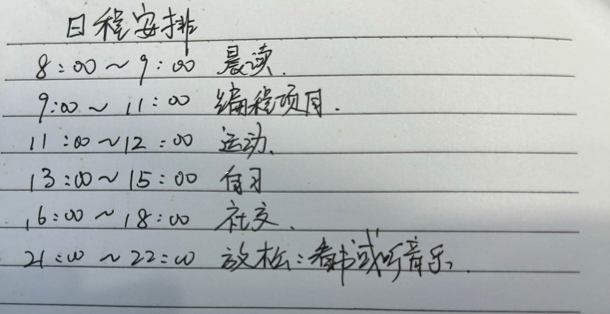 日程安排
8:00~9:00 晨读.
9:00~11:00 编程项目.
11:00~12:00 运动.
13:00~15:00 自习
16:00~18:00 社交.
21:00~22:00 放松:看书或听音乐.